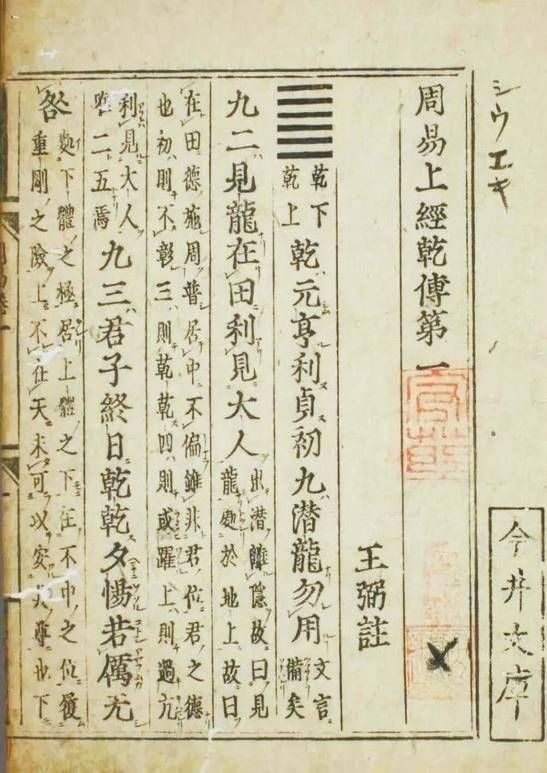 シウエキ
今井文庫
周易上經乾傳第一
王弼註
乾下乾上乾元亨利貞初九潜龍勿用文言備矣
九二見龍在田利見大人出潜離隱故曰見龍處於地上故曰
在田德施周普居中不偏雖非君位君之德也初則不彰三則乾乾四則或躍上則過亢
利見大人唯二五焉九三君子終日乾乾夕惕若厲无
咎處下體之極居上體之下在不中之位履重剛之險上不在天未可以安其尊也下